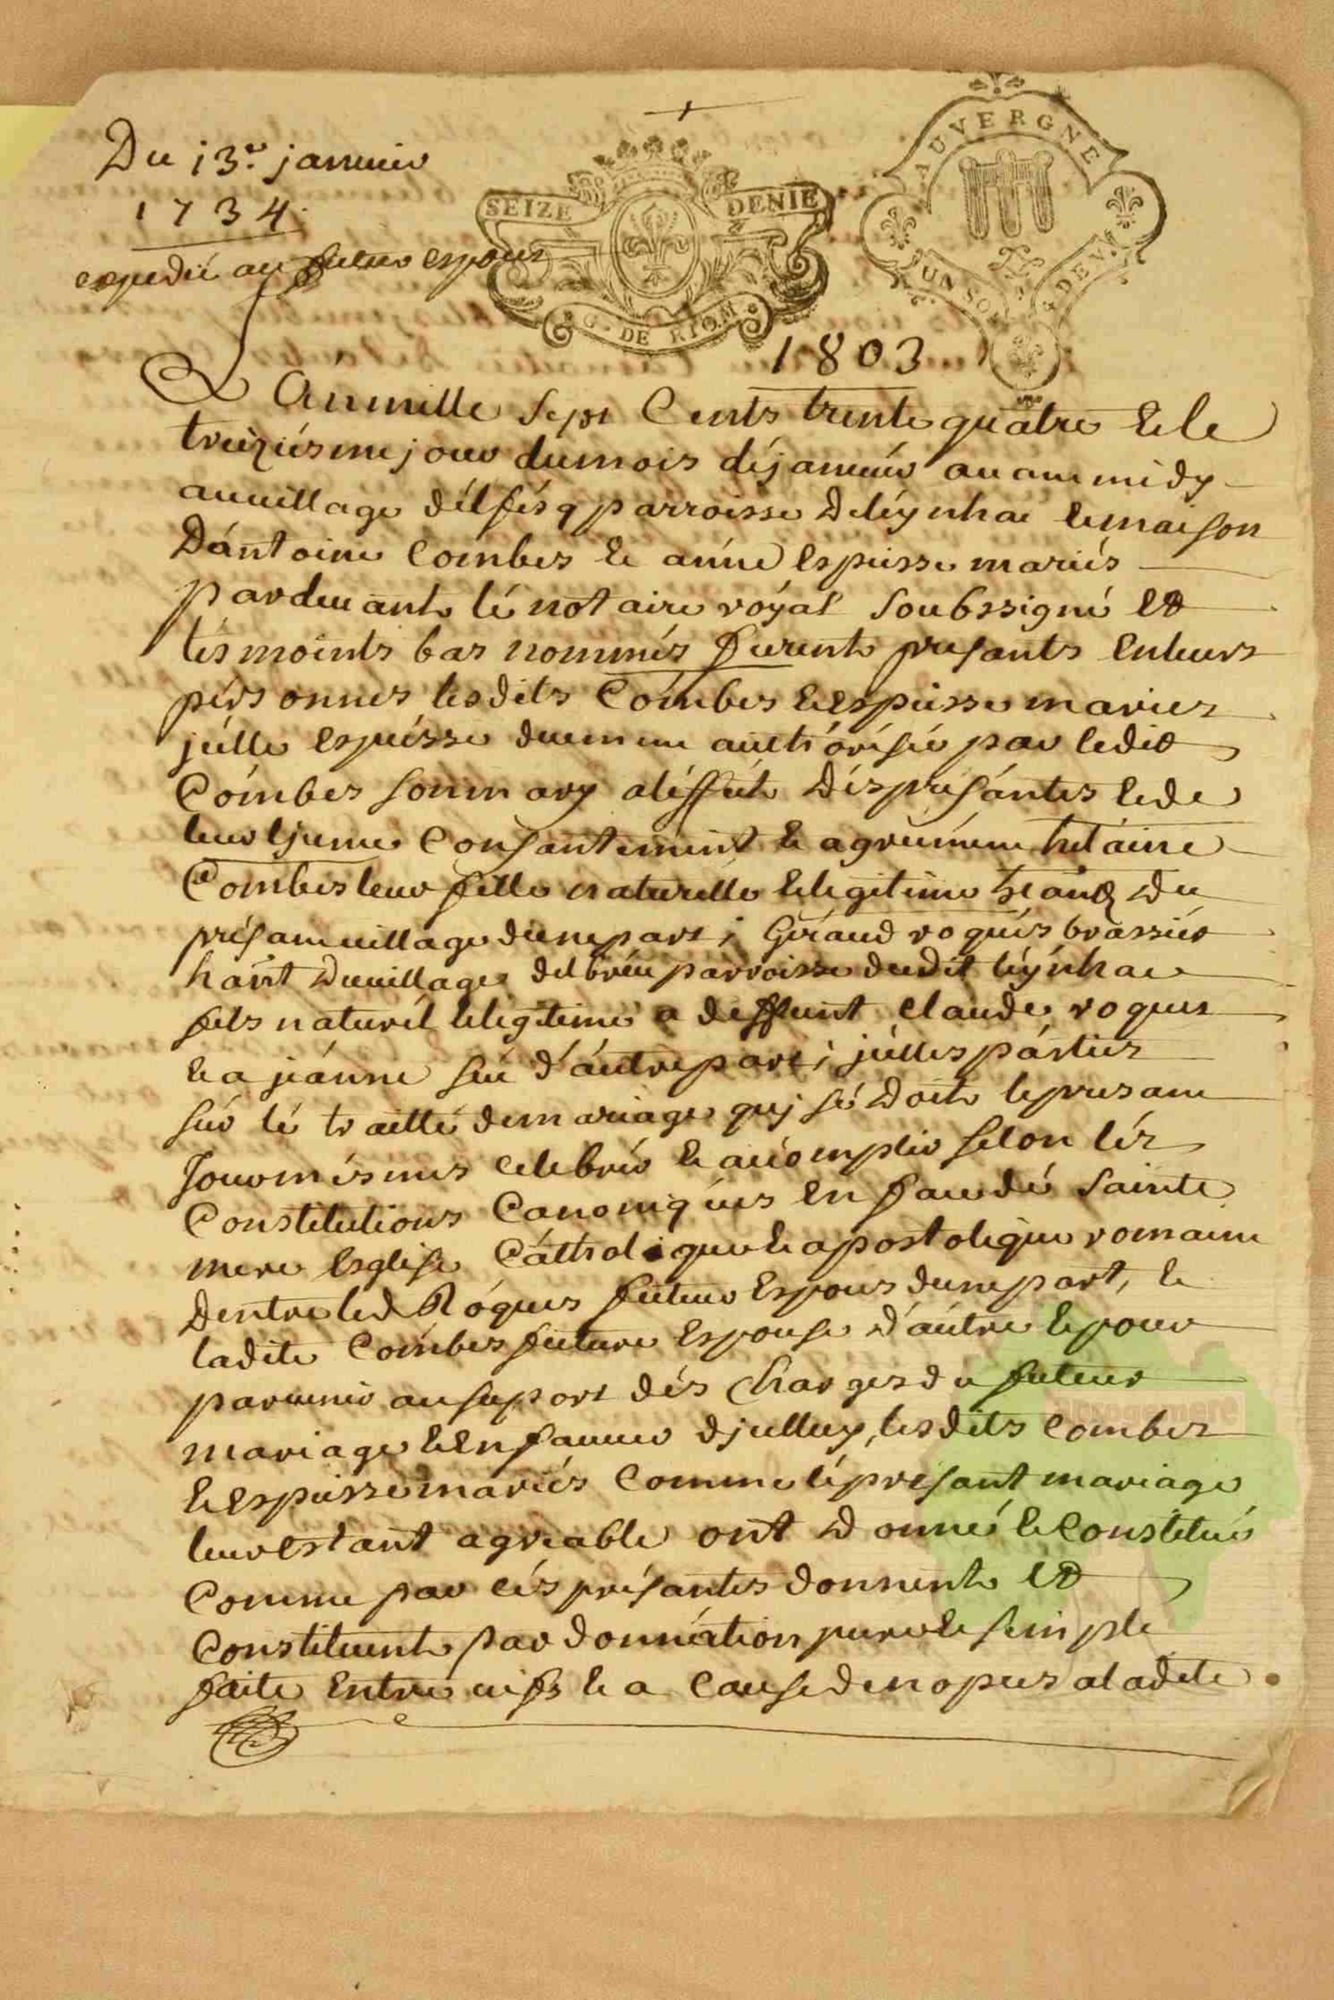 Du 13e janvier
1734
expedié au futur espoux
SEIZE DENIE
G. DE RIOM
AUVERGNE
UN SOL 4 DE V.
1803
L'An mille sept Cents trente quatre & le
treiziesme jour du mois de janvier avant midy
au village delfésq parroisse de leynhac & maison
d'antoine Combes & anne espeisse mariés
pardevant le notaire royal soubssigné et
tesmoints bas nommés furent presants en leurs
personnes lesdits Combes & espeisse maries
jcelle espeisse duement authorisée par ledit
Combes son mary a l'effait des presantes & de
leur consantement & agreement helaine
Combes leur fille naturelle & legitime du
presant village d'une part; Geraud roques brassier
hant du village delbreu parroisse dudit leynhac
fils naturel & legitime a deffunt Claude roques
& a jeanne d'autre part; jcelles parties
sur le traitté de mariage quj se doit le presant
jour mesmes celebrer & accomplir selon les
Constitutions Canoniques en face de sainte
mere Esglise Catholique & apostolique romaine
d'entre led Roques futur Espous d'une part, &
ladite Combes future Espouse d'autre & pour
parvenir au suport des charges du futeur
mariage & en faveur d'jcelluy, lesdits Combes
& Espeisse mariés comme le presant mariage
leur estant agreable ont donné & constitué
comme par ces presantes donnent et
constituent par donnation pure & simple
faite entre vifs & a cause de nopces a ladite